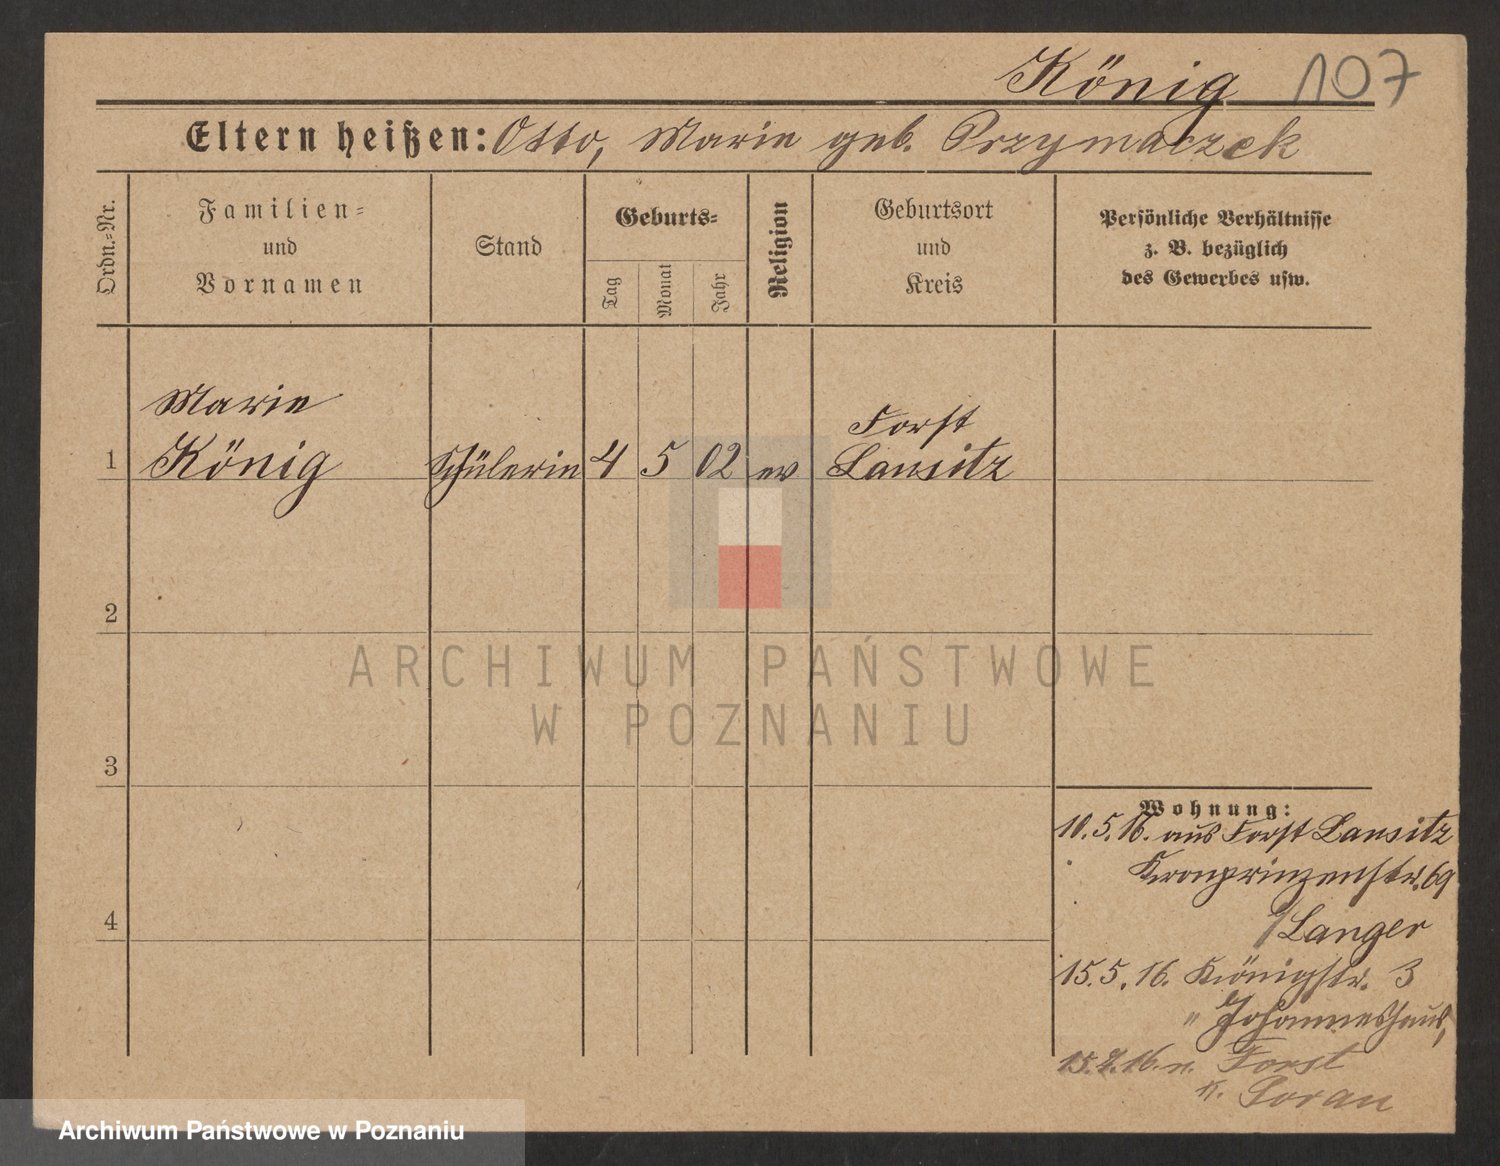 König 107
Eltern heißen: Otto, Marie geb. Przymaczek
Ordn.-Nr.
Familien-
und
Vornamen
Stand
Geburts-
Tag
Monat
Jahr
Religion
Geburtsort
und
Kreis
Persönliche Verhältnisse
z. B. bezüglich
des Gewerbes usw.
Marie
1 König Schülerin 4 5 02 ev Forst
Lausitz
2
3
4
Wohnung:
10.5.16. aus Forst Lausitz
Kronprinzenstr. 69
/ Langer
15.5.16. Königstr. 3
" Johanneshaus,
15. 7. 16. n. Forst
K. Soran
ARCHIWUM PAŃSTWOWE
W POZNANIU
Archiwum Państwowe w Poznaniu